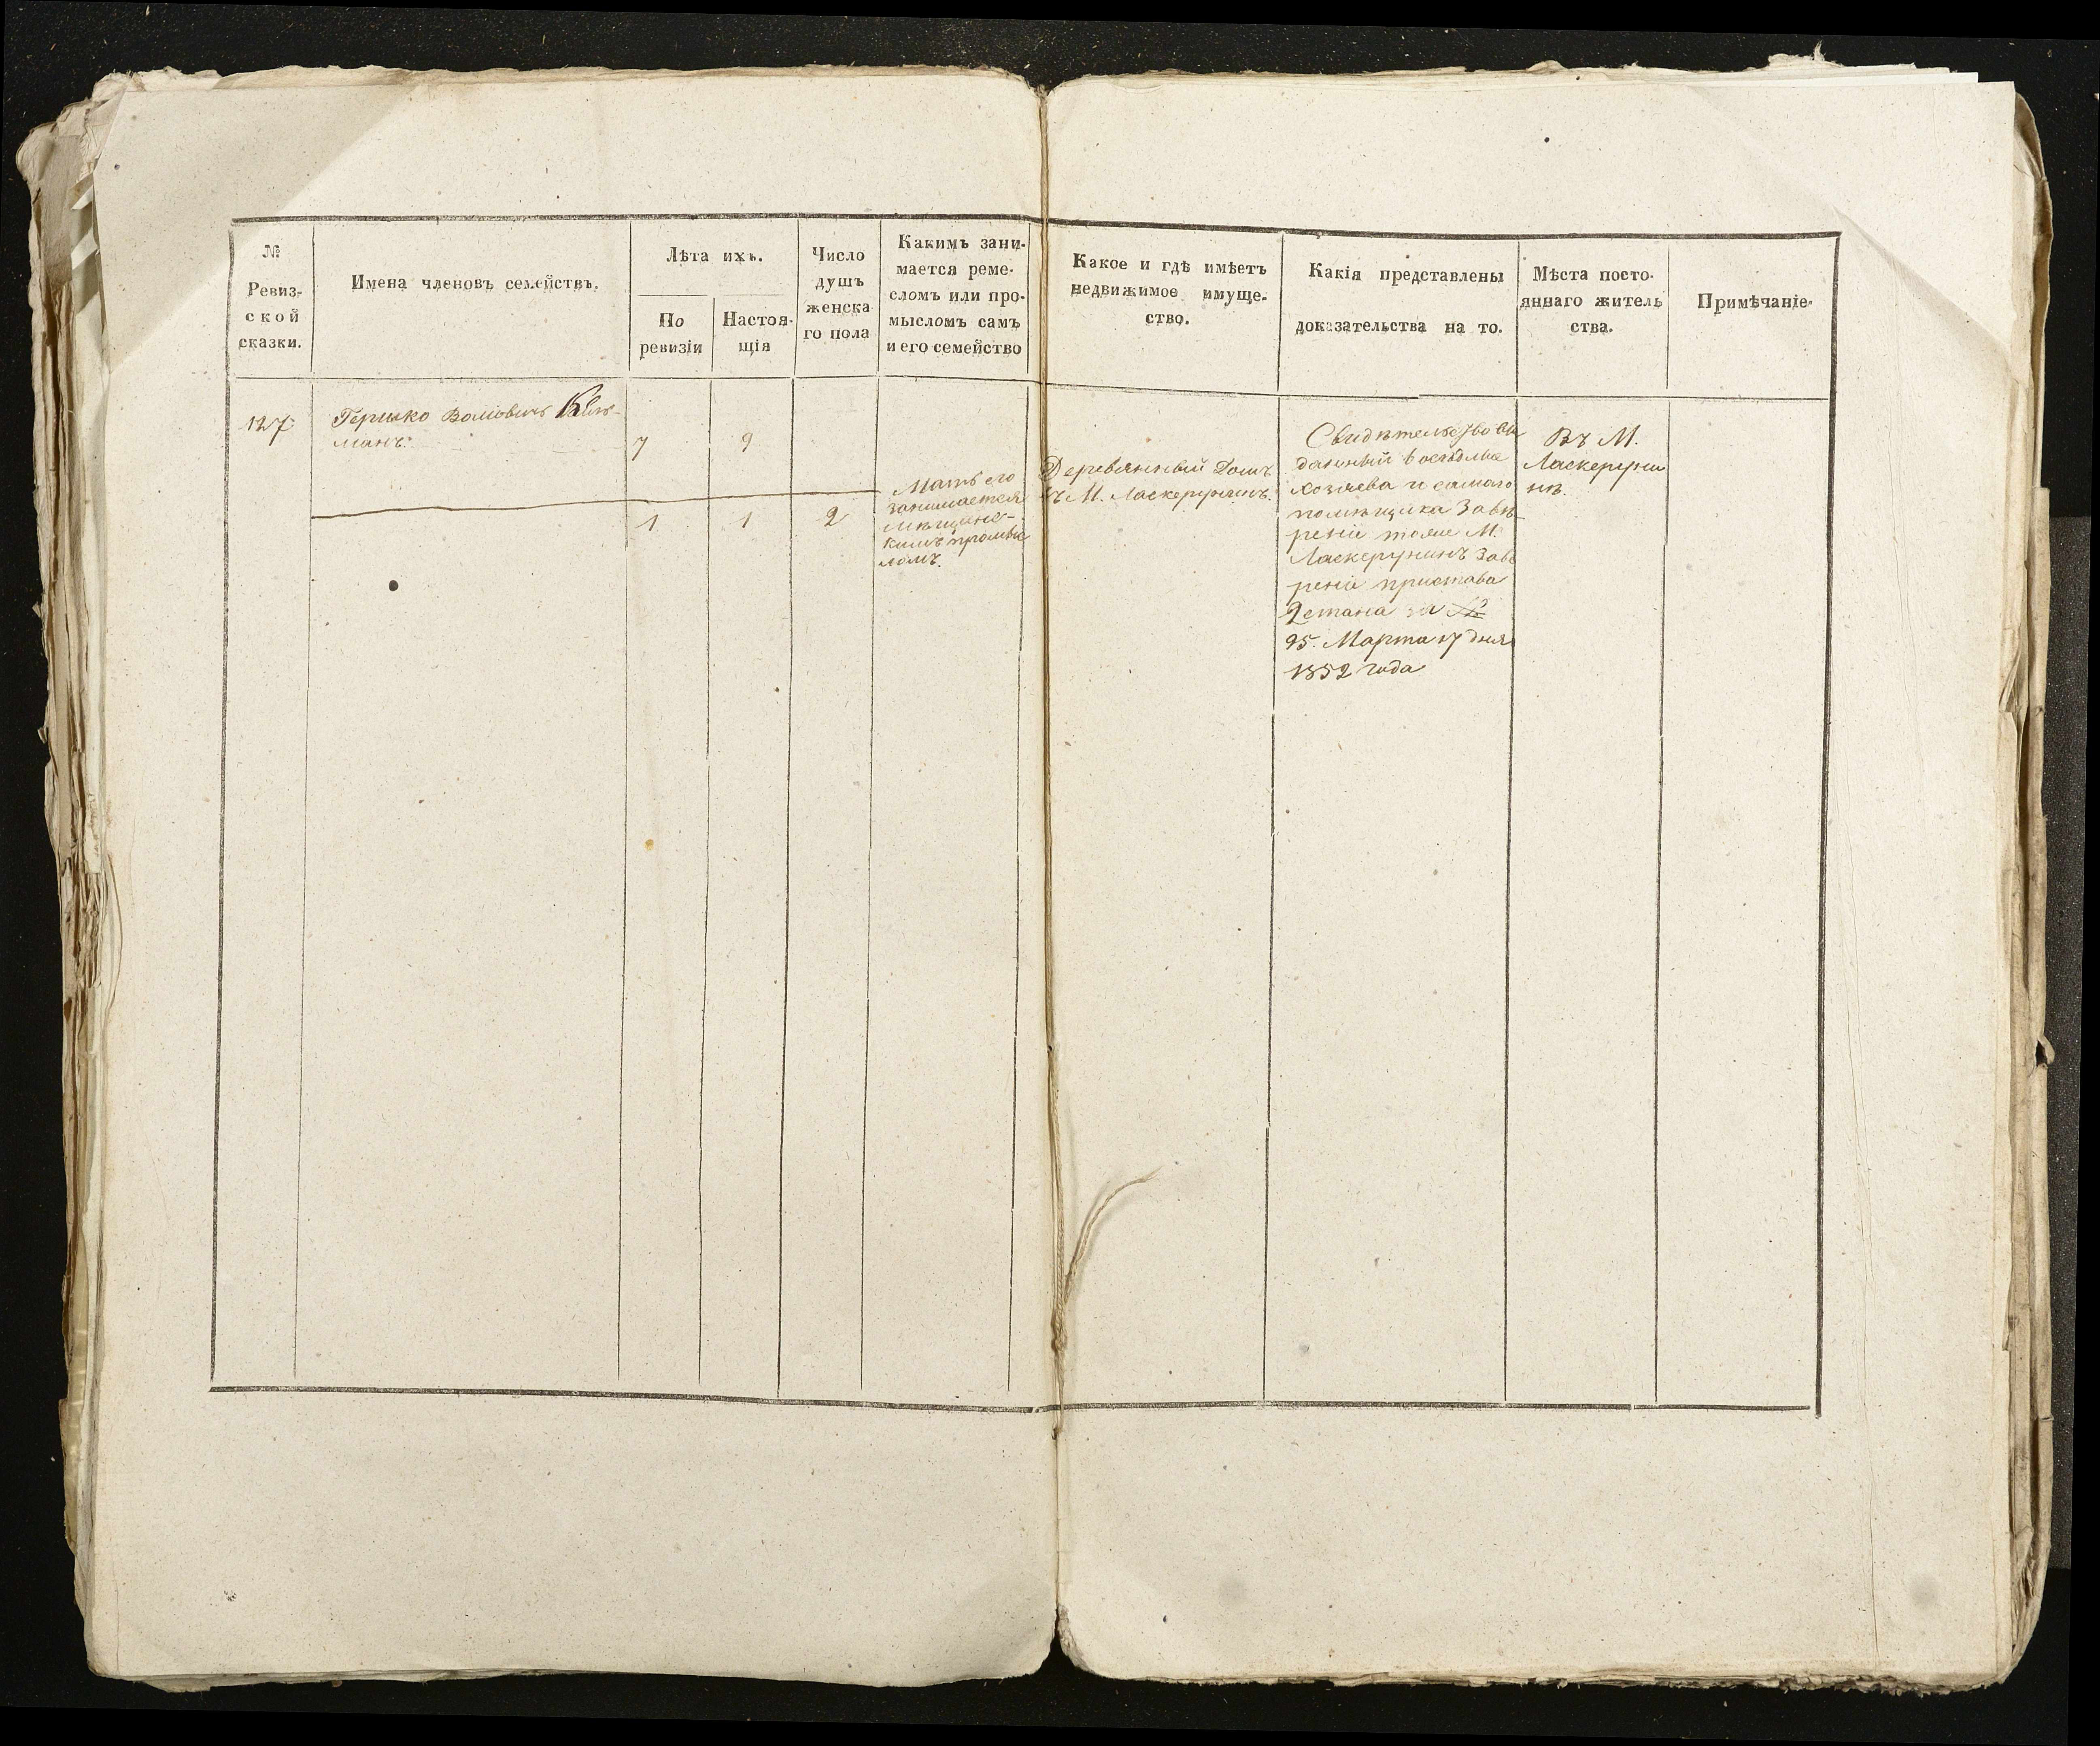 №
Ревиз-
ской
сказки.
Имена членовъ семействъ.
Лѣта ихъ.
По
ревизіи
Настоя-
щія
Число
душъ
женска
го пола
Какимъ зани-
мается реме-
сломъ или про-
мысломъ самъ
и его семейство
Какое и гдѣ имѣетъ
недвижимое имуще-
ство.
Какія представлены
доказательства на то.
Мѣста посто-
яннаго житель
ства.
Примѣчаніе
127.
Гершко Волловичъ
манъ.
7
9
1
1
2
Мать его
занимается
мѣщанс-
кимъ промы
ломъ.
Деревянный Домъ
въ М.
Свидѣтельство вы
данный
хозяева и самаго
помѣщика Завѣ
реніи тояже М.
Завѣ
реніи пристава
2 стана за №
95. Марта 17 дня
1852 года
Въ М.